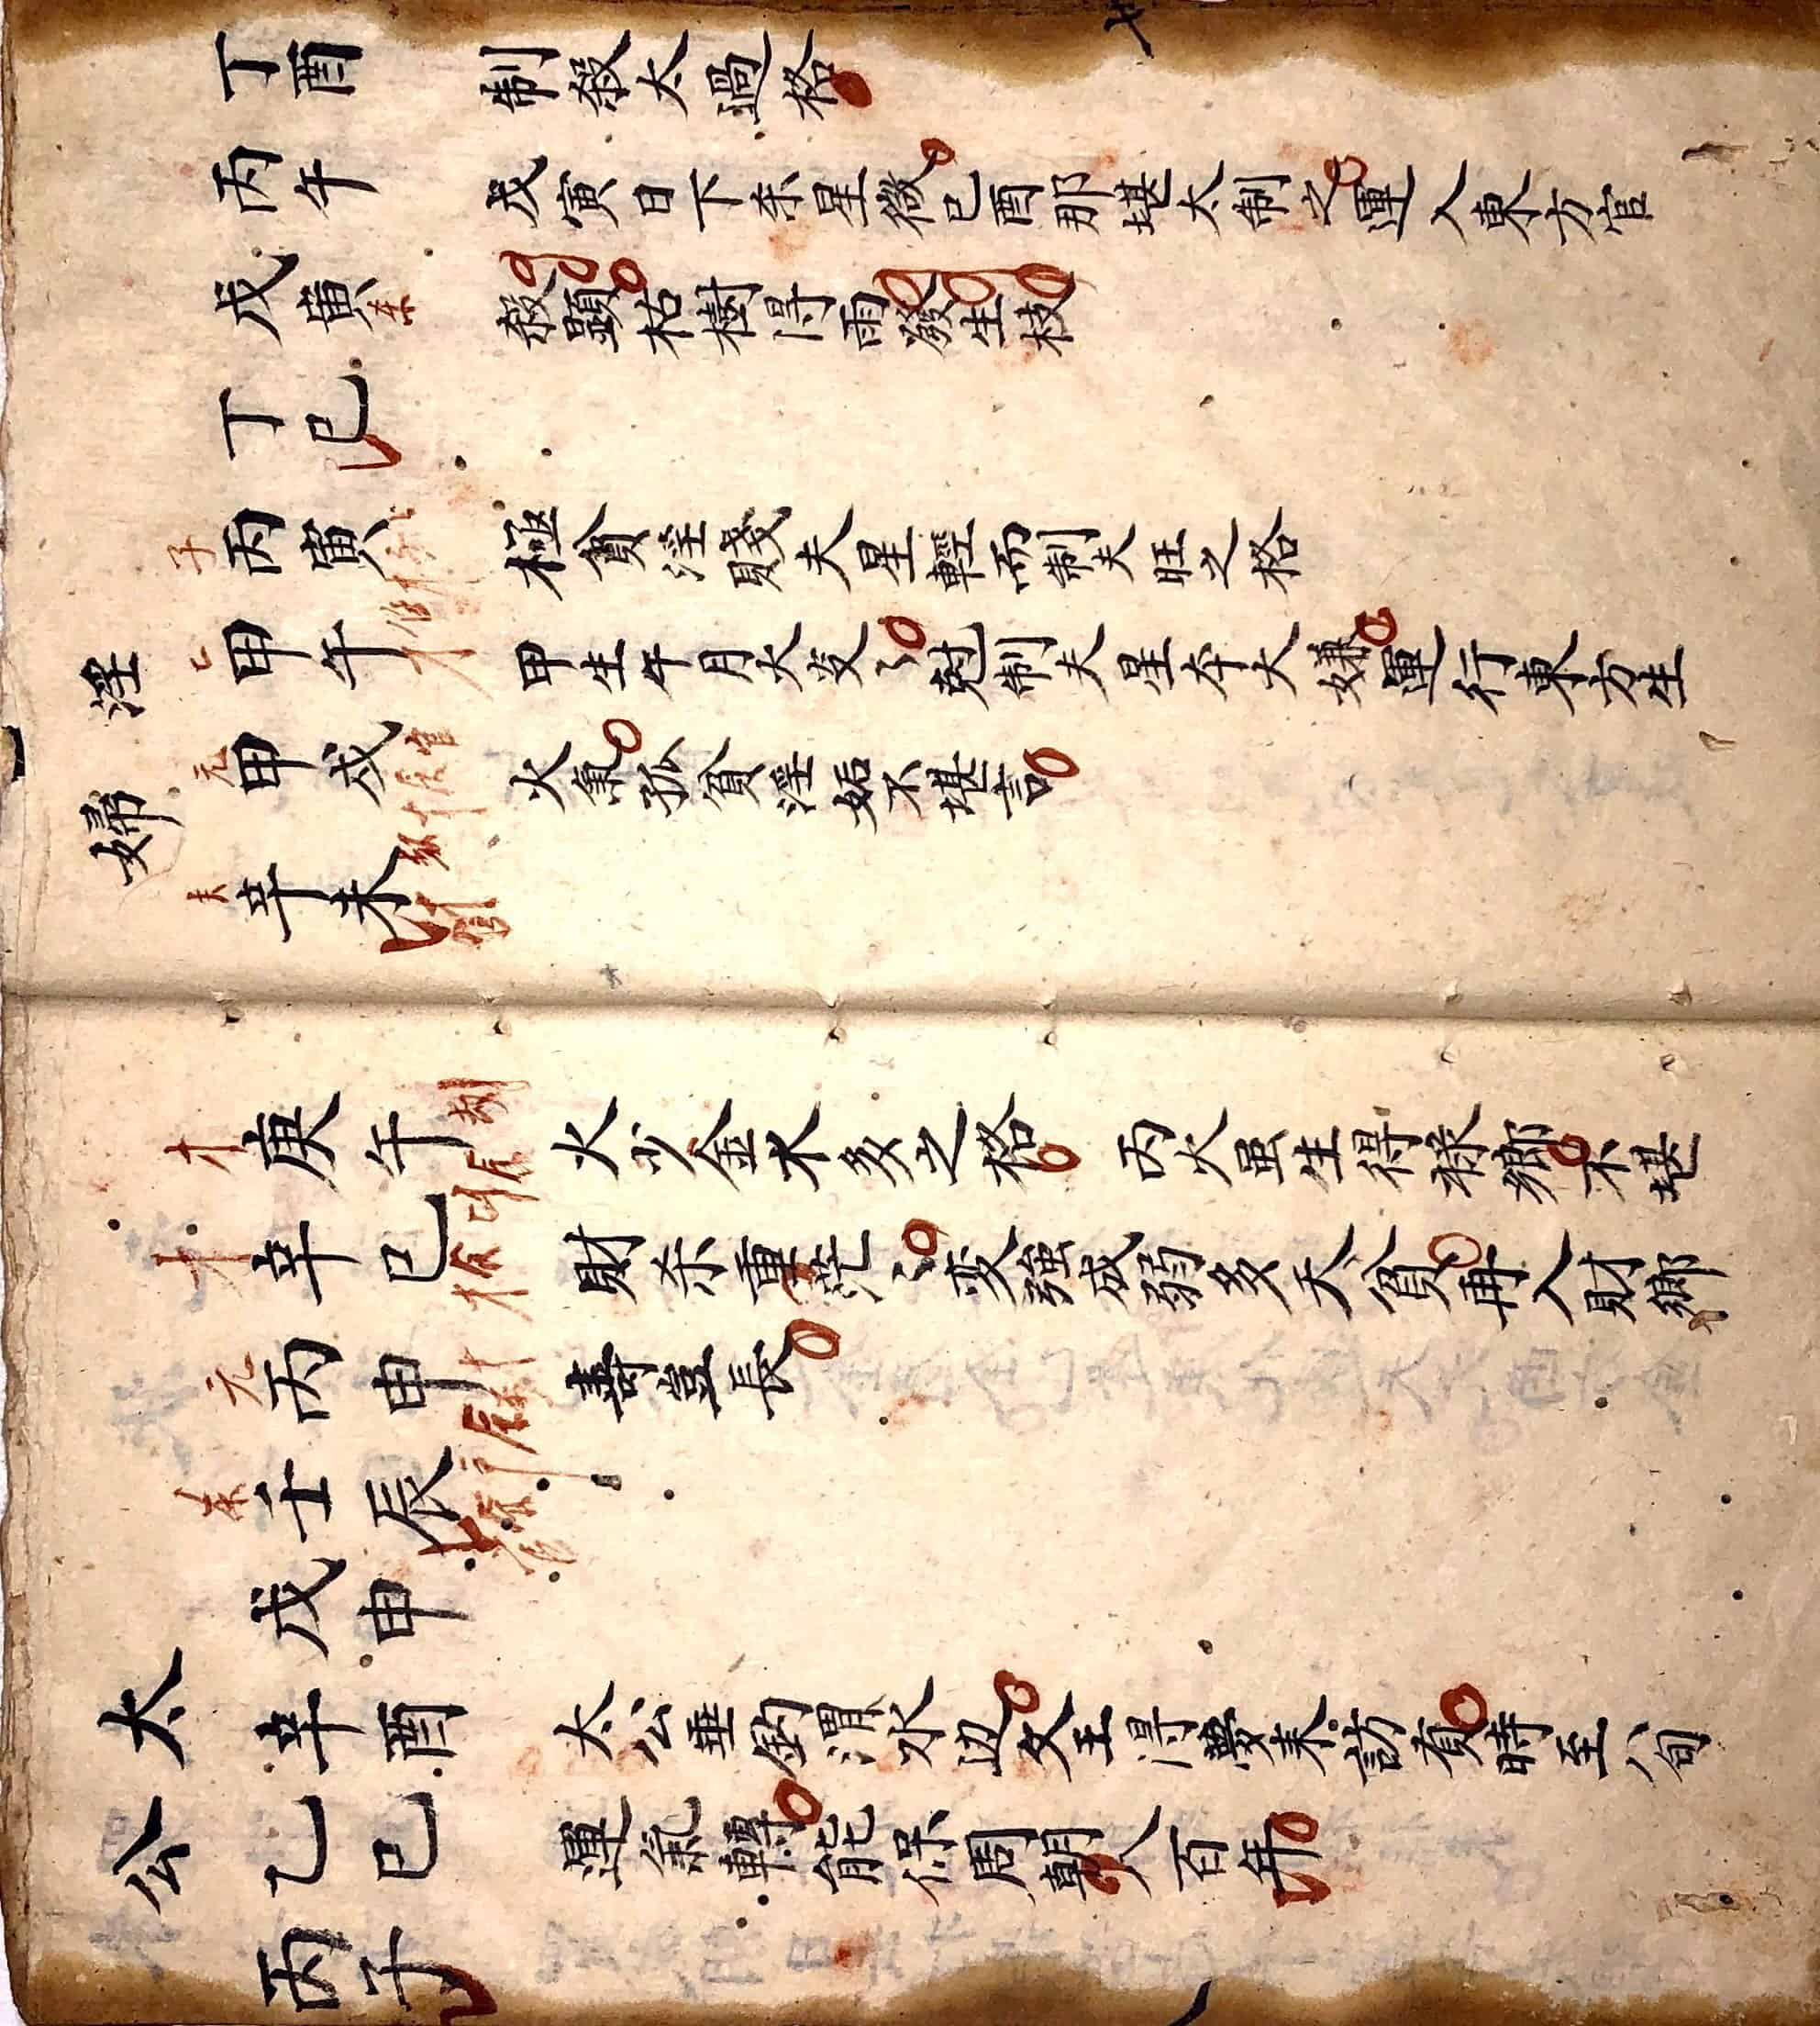 丁酉 制殺太過格
丙午 戊寅日下杀星微己酉那堪太制之運入東方官
戊寅杀 殺顕枯樹得雨發生枝
丁巳
淫婦
子 丙寅 極貧淫賤夫星輕而制夫旺之格
甲午 甲生午月火炎〻尅制夫星本大嫌運行東方生
元 甲戌 火氣孤貧淫妬不堪言
夫 辛未
才 庚午 劫 火少金水多之格 丙火虽生得祿鄉不堪
才 辛巳 財杀重茫〻变強成弱多夭貧再入財鄉
元 丙申 壽豈長
杀 壬辰
太公
戊申
辛酉 太公垂釣渭水边文王得夢来訪賢時至八旬
乙巳 運氣轉能保周朝八百年
丙子